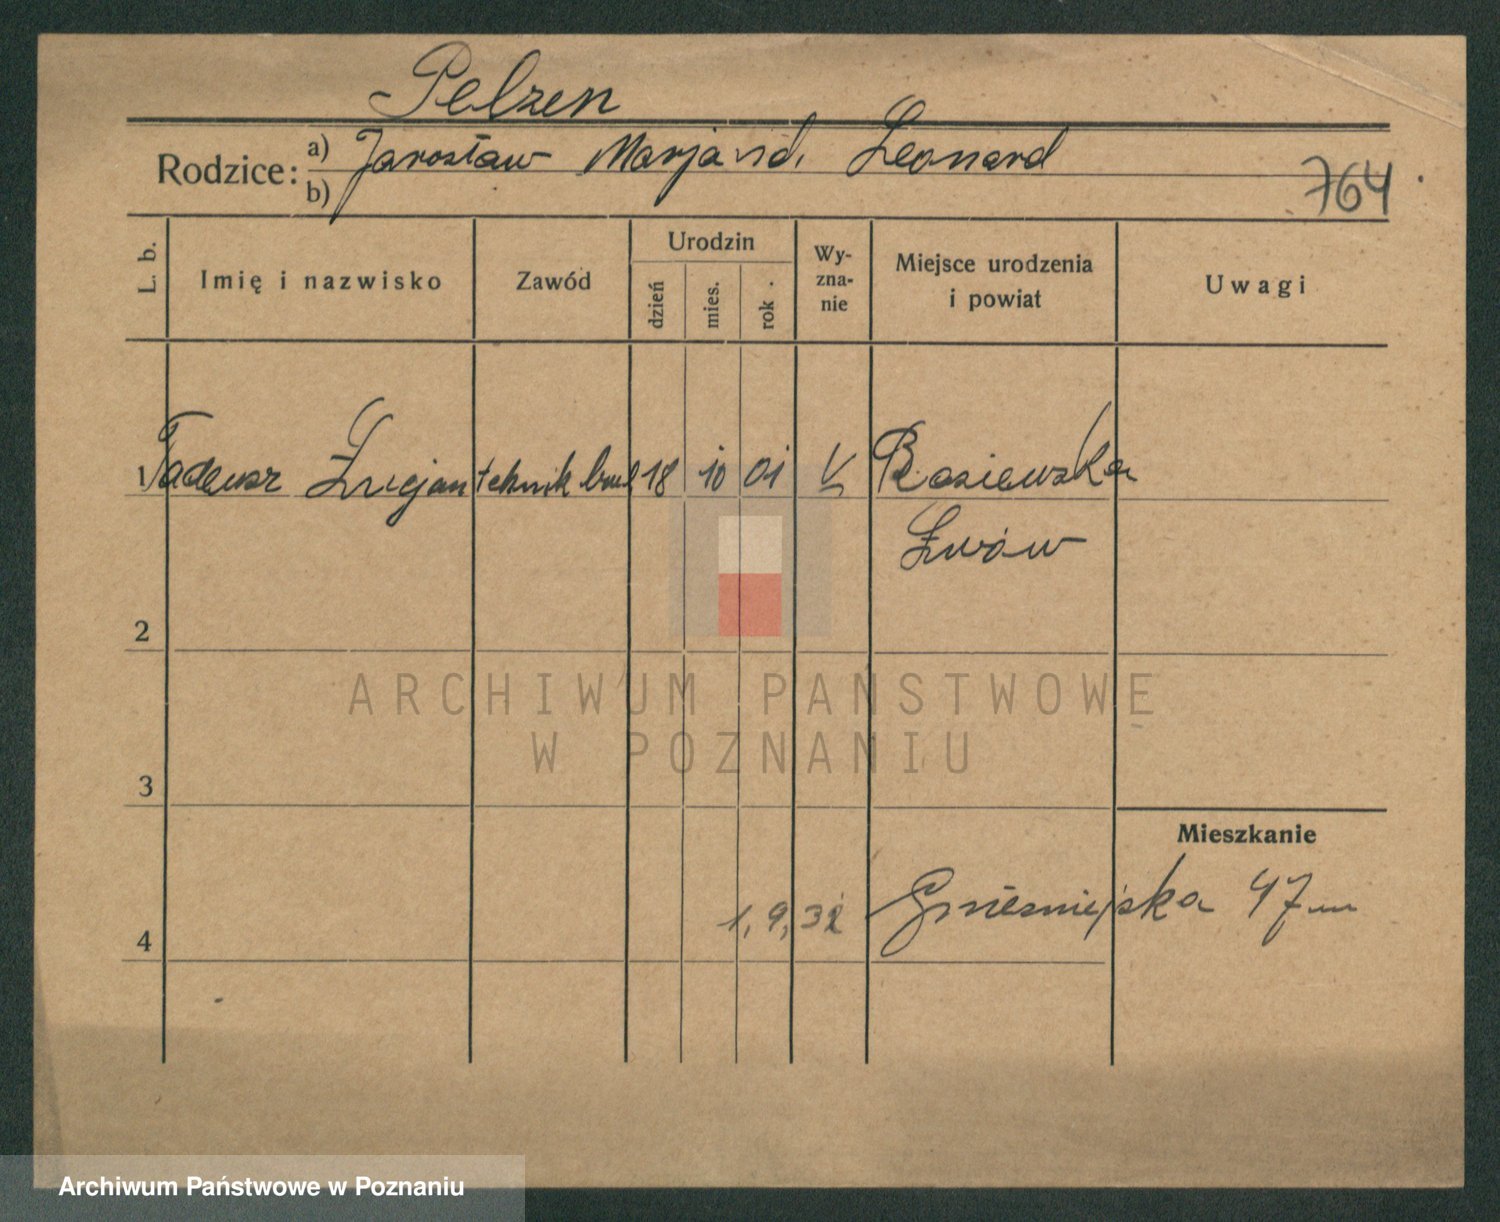 Pelzen
Rodzice: a) Jarosław Marja z d. Leonard
b)
764
L. b. Imię i nazwisko Zawód Urodzin dzień mies. rok Wy-zna-nie Miejsce urodzenia i powiat Uwagi
1 Tadeusz Lucjan technik bud 18 10 01
Lwów
2
ARCHIWUM PAŃSTWOWE
W POZNANIU
3
Mieszkanie
1.9.32 Gnieźnieńska 47
4
Archiwum Państwowe w Poznaniu